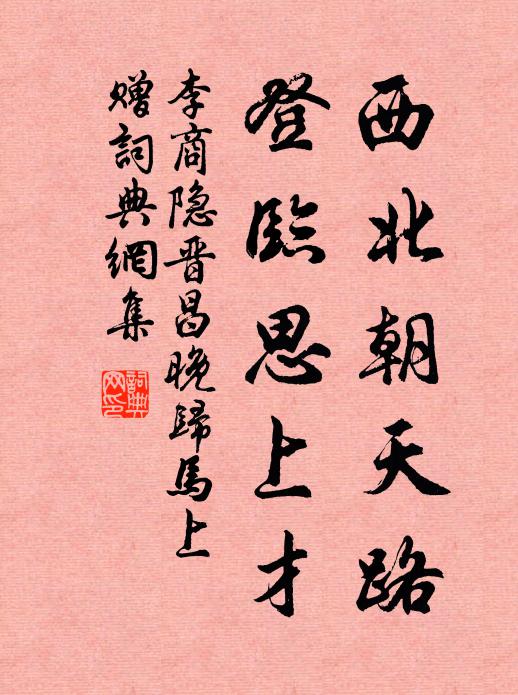 西北朝天路
登臨思上才
李商隐晋昌晚歸馬上
赠詞典網集
詞典网印